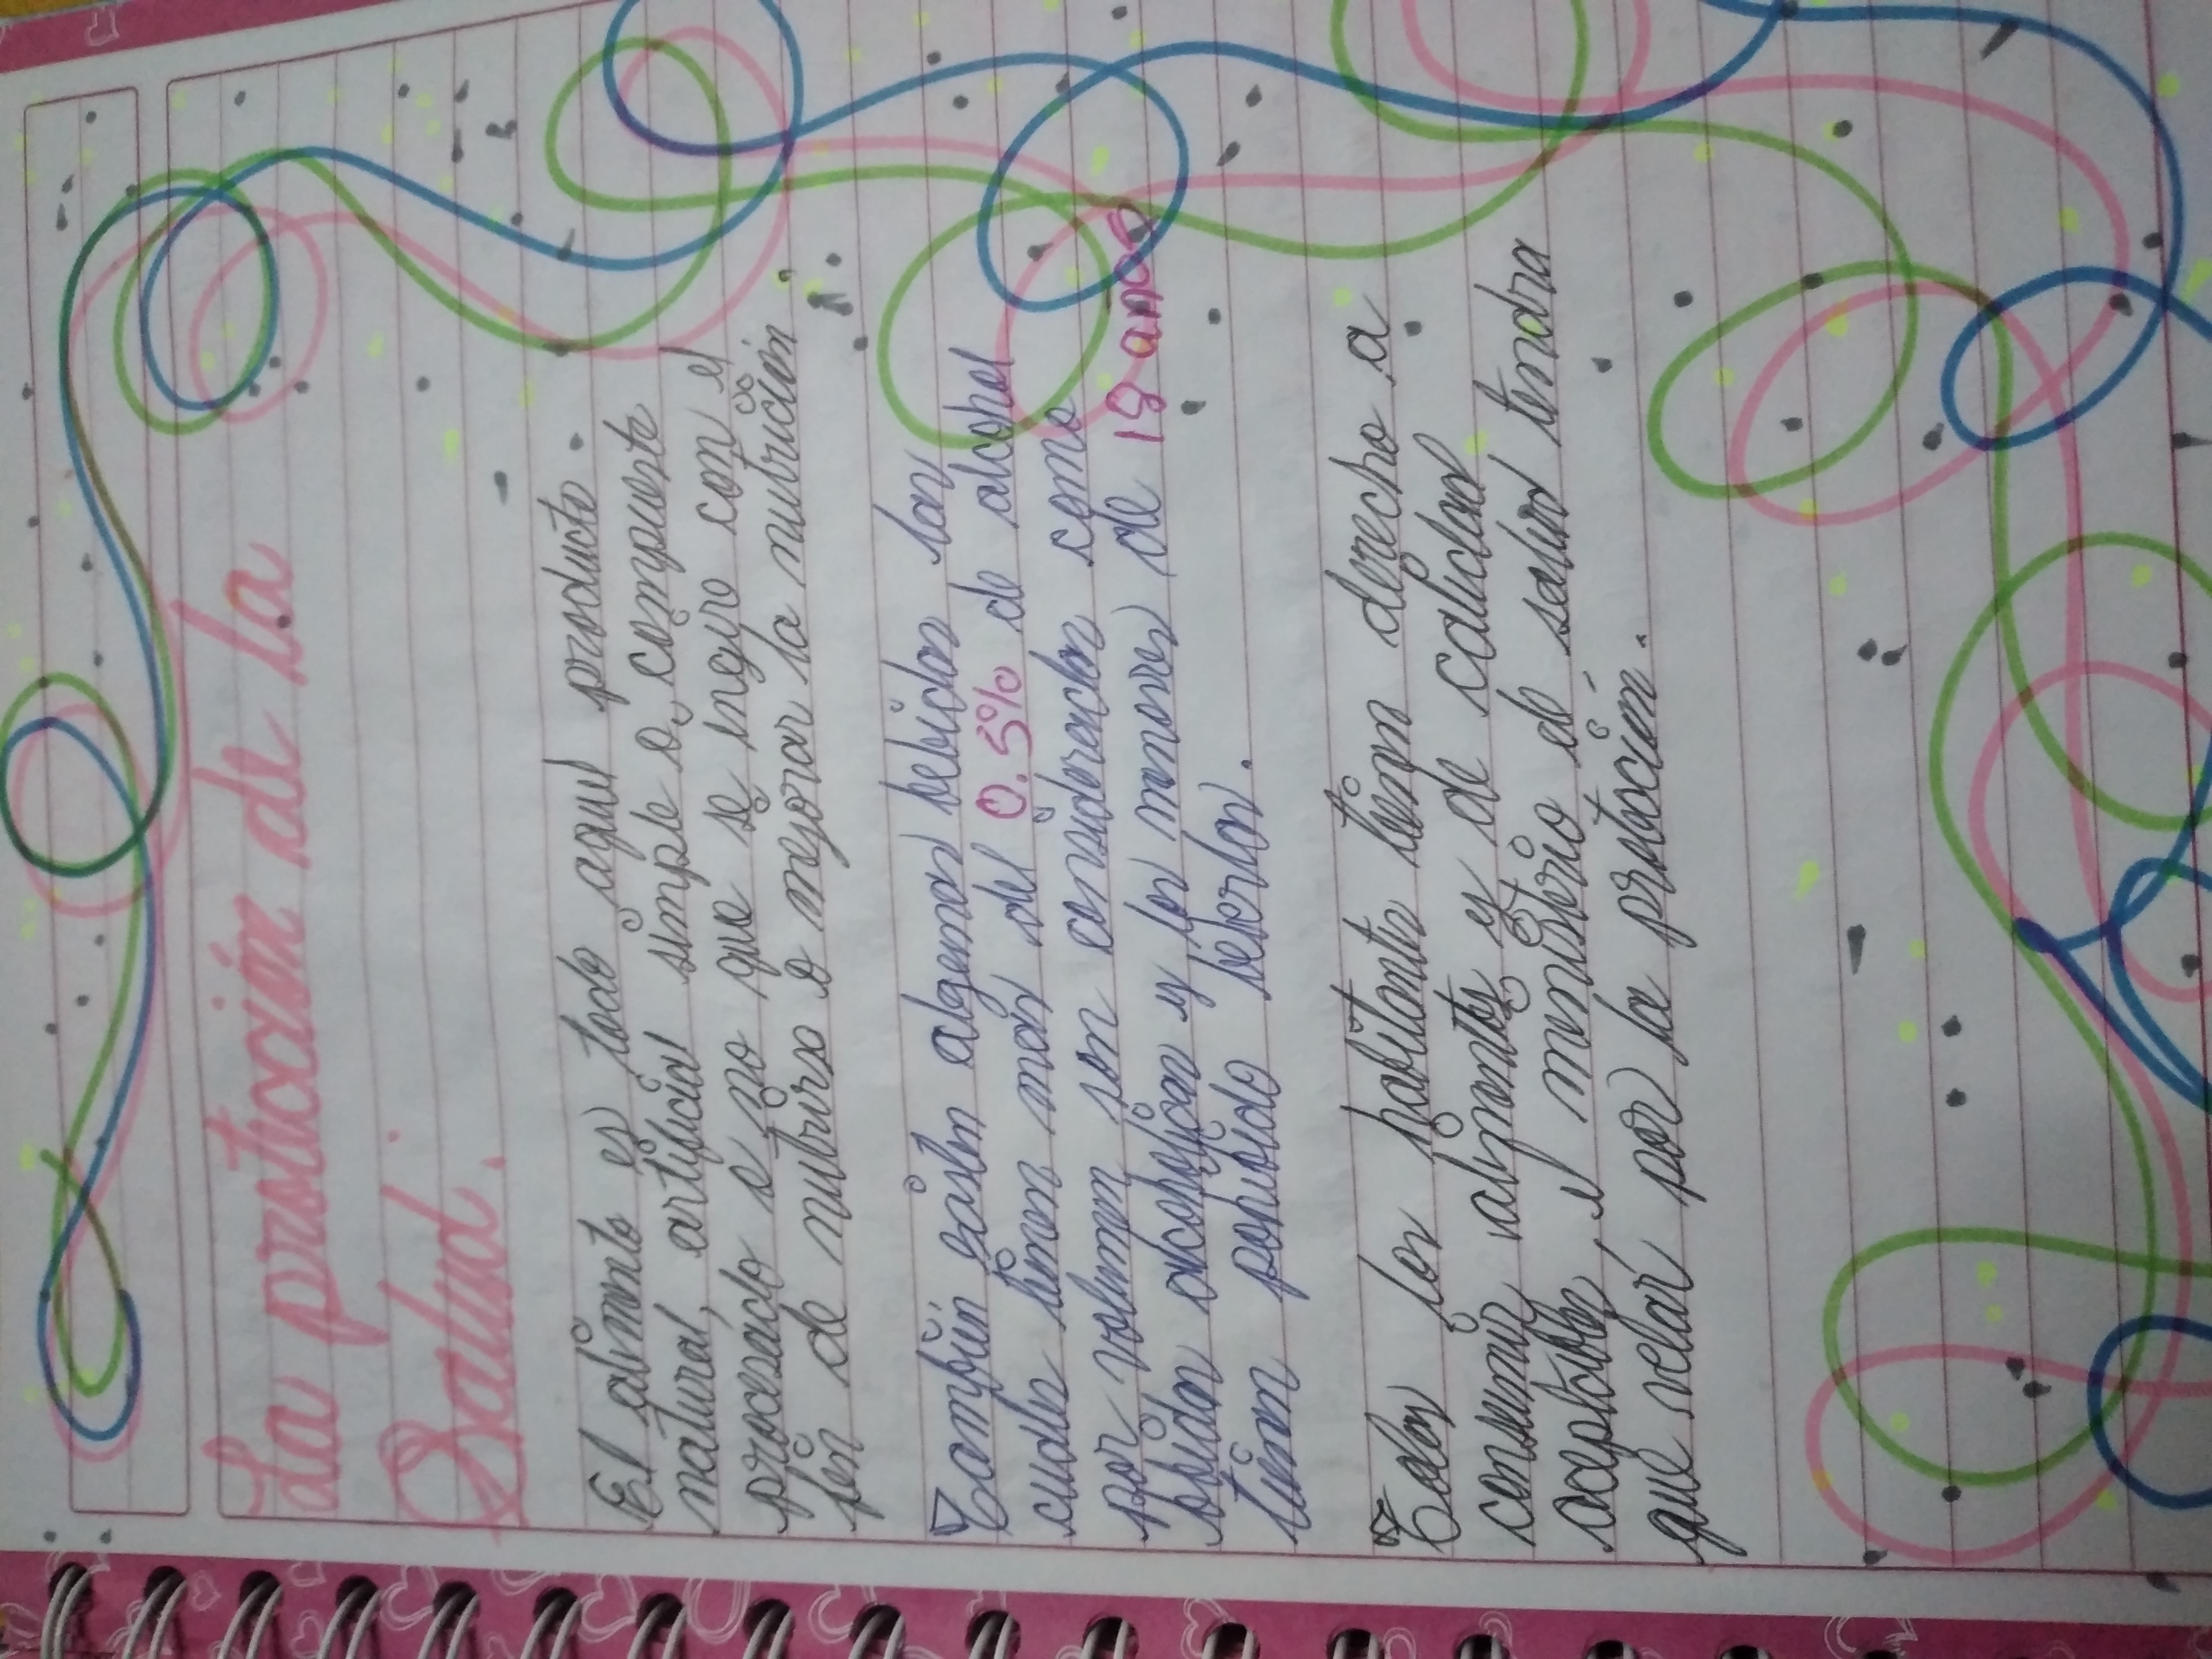 La protección de la
Salud.
El alimento es todo aquel producto
natural, artificial simple o compuesto
procesado o no que se ingiro con el
fin de nutrirse o mejorar la nutrición
También gasten algemas bebidas las
cuales tienen más del 0.5% de alcohol
por volumen son consideradas como
bebidas alcoholicas y los menores de 18 años
tienen pohibido beberlas.
Todos los habitante tienen derecho a
consumir alimentos y de calidad
aceptable, el menisterio de salud tendra
que velar por la protección.